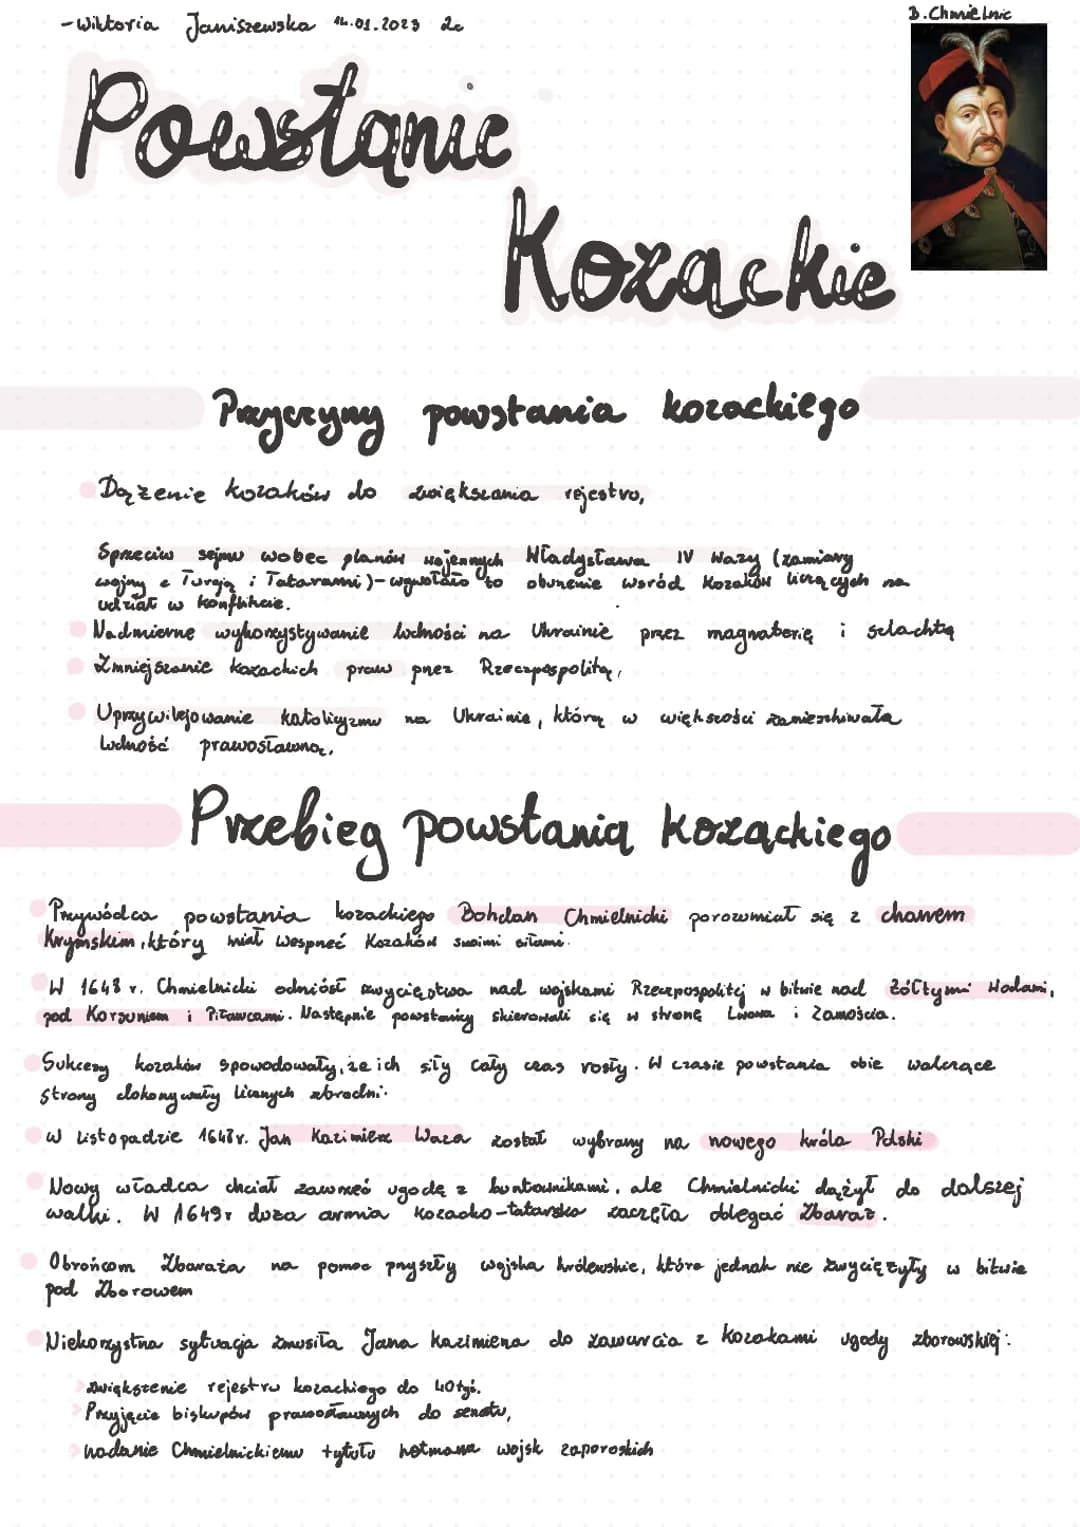 -Wiktoria Janiszewska 14.01.2023 2c
B.Chmielnic
Powstanie
Kozackie
Przyczyny powstania kozackiego
Dążenie kozaków do zwiększania rejestru,
Sprzeciw sejmu wobec planów wojennych Władysława IV Wazy (zamiary
wojny z Turcją i Tatarami)-wywołało to oburzenie wśród Kozaków liczących na
udział w konflikcie.
Nadmierne wykorzystywanie ludności na Ukrainie przez magnaterię i szlachtę
Zmniejszanie kozackich praw przez Rzeczpospolitą,
Uprzywilejowanie katolicyzmu na Ukrainie, którą w większości zamieszkiwała
ludność prawosławna,
Przebieg powstania kozackiego
Przywódca powstania kozackiego Bohdan Chmielnicki porozumiał się z chanem
Krymskim, który miał wesprzeć Kozaków swoimi siłami.
W 1648 r. Chmielnicki odniósł zwycięstwa nad wojskami Rzeczpospolitej w bitwie nad Żółtymi Wodami,
pod Korsuniem i Piławcami. Następnie powstańcy skierowali się w stronę Lwowa i Zamościa.
Sukcesy kozaków spowodowały, że ich siły cały czas rosły. W czasie powstania obie walczące
strony dokonywały licznych zbrodni.
W Listopadzie 1648r. Jan Kazimierz Waza został wybrany na nowego króla Polski
Nowy władca chciał zawrzeć ugodę z buntownikami, ale Chmielnicki dążył do dalszej
walki. W 1649r duża armia kozacko-tatarska zaczęła oblegać Zbaraż.
Obrońcom Zbaraża na pomoc przyszły wojska królewskie, które jednak nie zwyciężyły w bitwie
pod Zborowem
Niekorzystna sytuacja zmusiła Jana Kazimierza do zawarcia z Kozakami ugody zborowskiej:
zwiększenie rejestru kozackiego do 40tyś.
Przyjęcie biskupów prawosławnych do senatu,
nadanie Chmielnickiemu tytułu hetmana wojsk zaporoskich